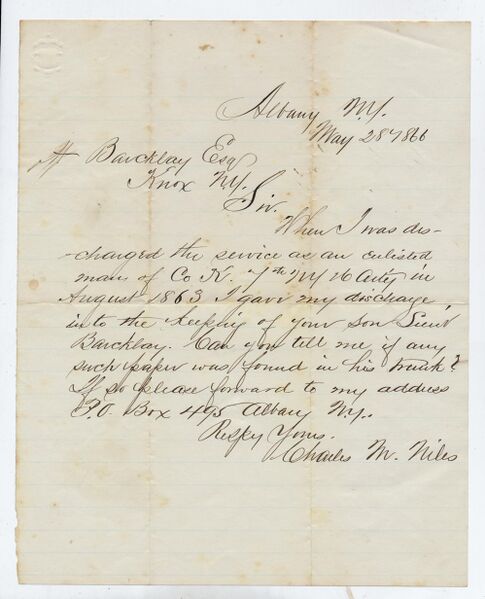 Albany N.Y.
May 28 1866
A Barcklay Esq
Knox N.Y.
Sir.
When I was dis-
-charged the service as an enlisted
man of Co K. 7th N Y H Arty in
August 1863 I gave my discharge
into the keeping of your son Lieut
Barcklay. Can you tell me if any
such paper was found in his trunk?
If so please forward to my address
P.O. Box 495 Albany N.Y.
Respy Yours.
Charles M. Niles